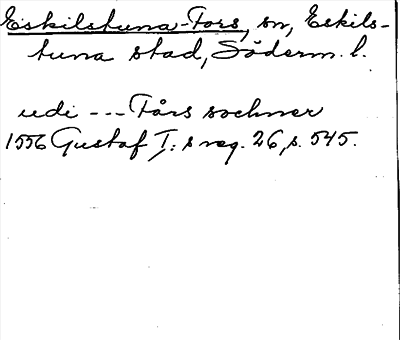 Eskilstuna-Fors, sn, Eskils-
tuna stad, Söderm. l.
udi --- Fårs sochner
1556 Gustaf I:s reg. 26, s. 545.